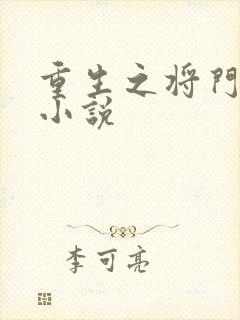 重生之将門
小説
李可亮